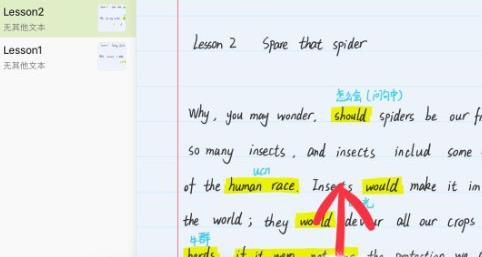 Lesson2
无其他文本
Lesson1
无其他文本
Lesson 2 Spare that spider
怎么会(问句中)
Why, you may wonder, should spiders be our
so many insects, and insects includ some
ucn
of the human race. Insects would make it in
the world; they would devour all our crops
牛群
herds, if it were not the protection we